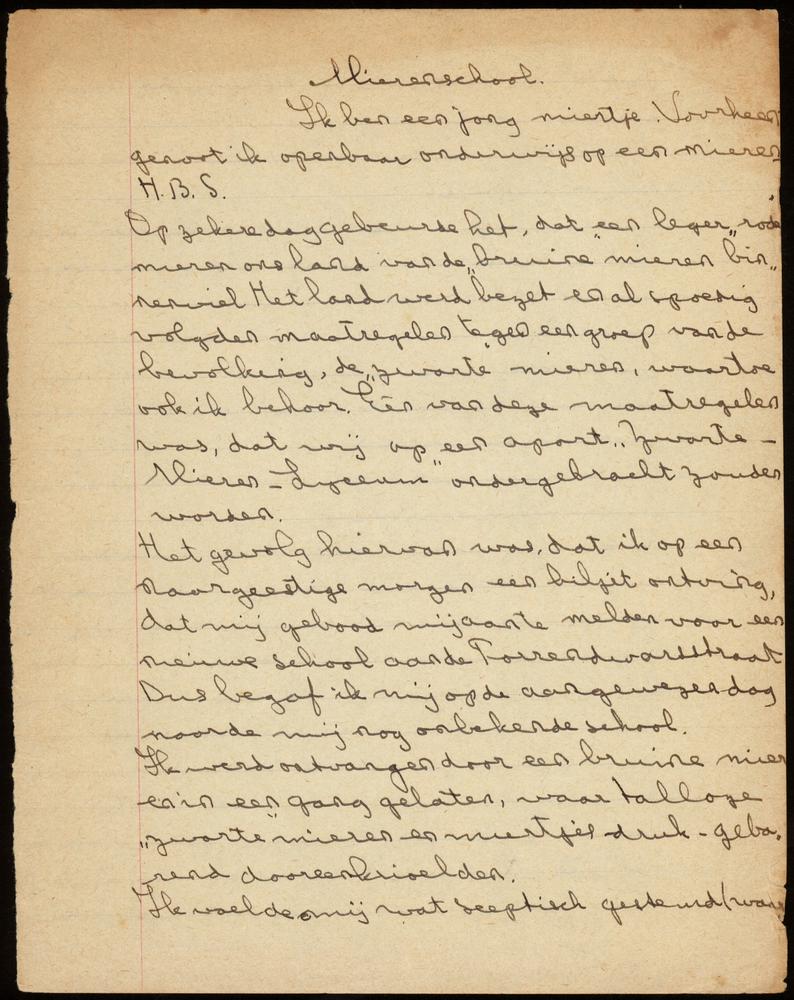 Mierenschool.
Ik ben een jong miertje. Voorheen
genoot ik openbaar onderwijs op een mieren
H.B.S.
Op zekere dag gebeurde het, dat een leger „rode
mieren ons land van de „bruine" mieren bin„
nenviel Het land werd bezet en al spoedig
volgden maatregelen tegen een groep van de
bevolking, de „zwarte" mieren, waartoe
ook ik behoor. Eén van deze maatregelen
was, dat wij op een apart „Zwarte-
Mieren-Lyceum" ondergebracht zouden
worden.
Het gevolg hiervan was, dat ik op een
naargeestige morgen een biljet ontving,
dat mij gebood mij aan te melden voor een
nieuwe school aan de Torrendwarsstraat
Dus begaf ik mij op de aangewezen dag
naar de mij nog onbekende school.
Ik werd ontvangen door een bruine mier
en in een gang gelaten, waar talloze
„zwarte" mieren en miertjes druk-geba„
rend dooreenkrioelden.
Ik voelde mij wat sceptisch gestemd (want